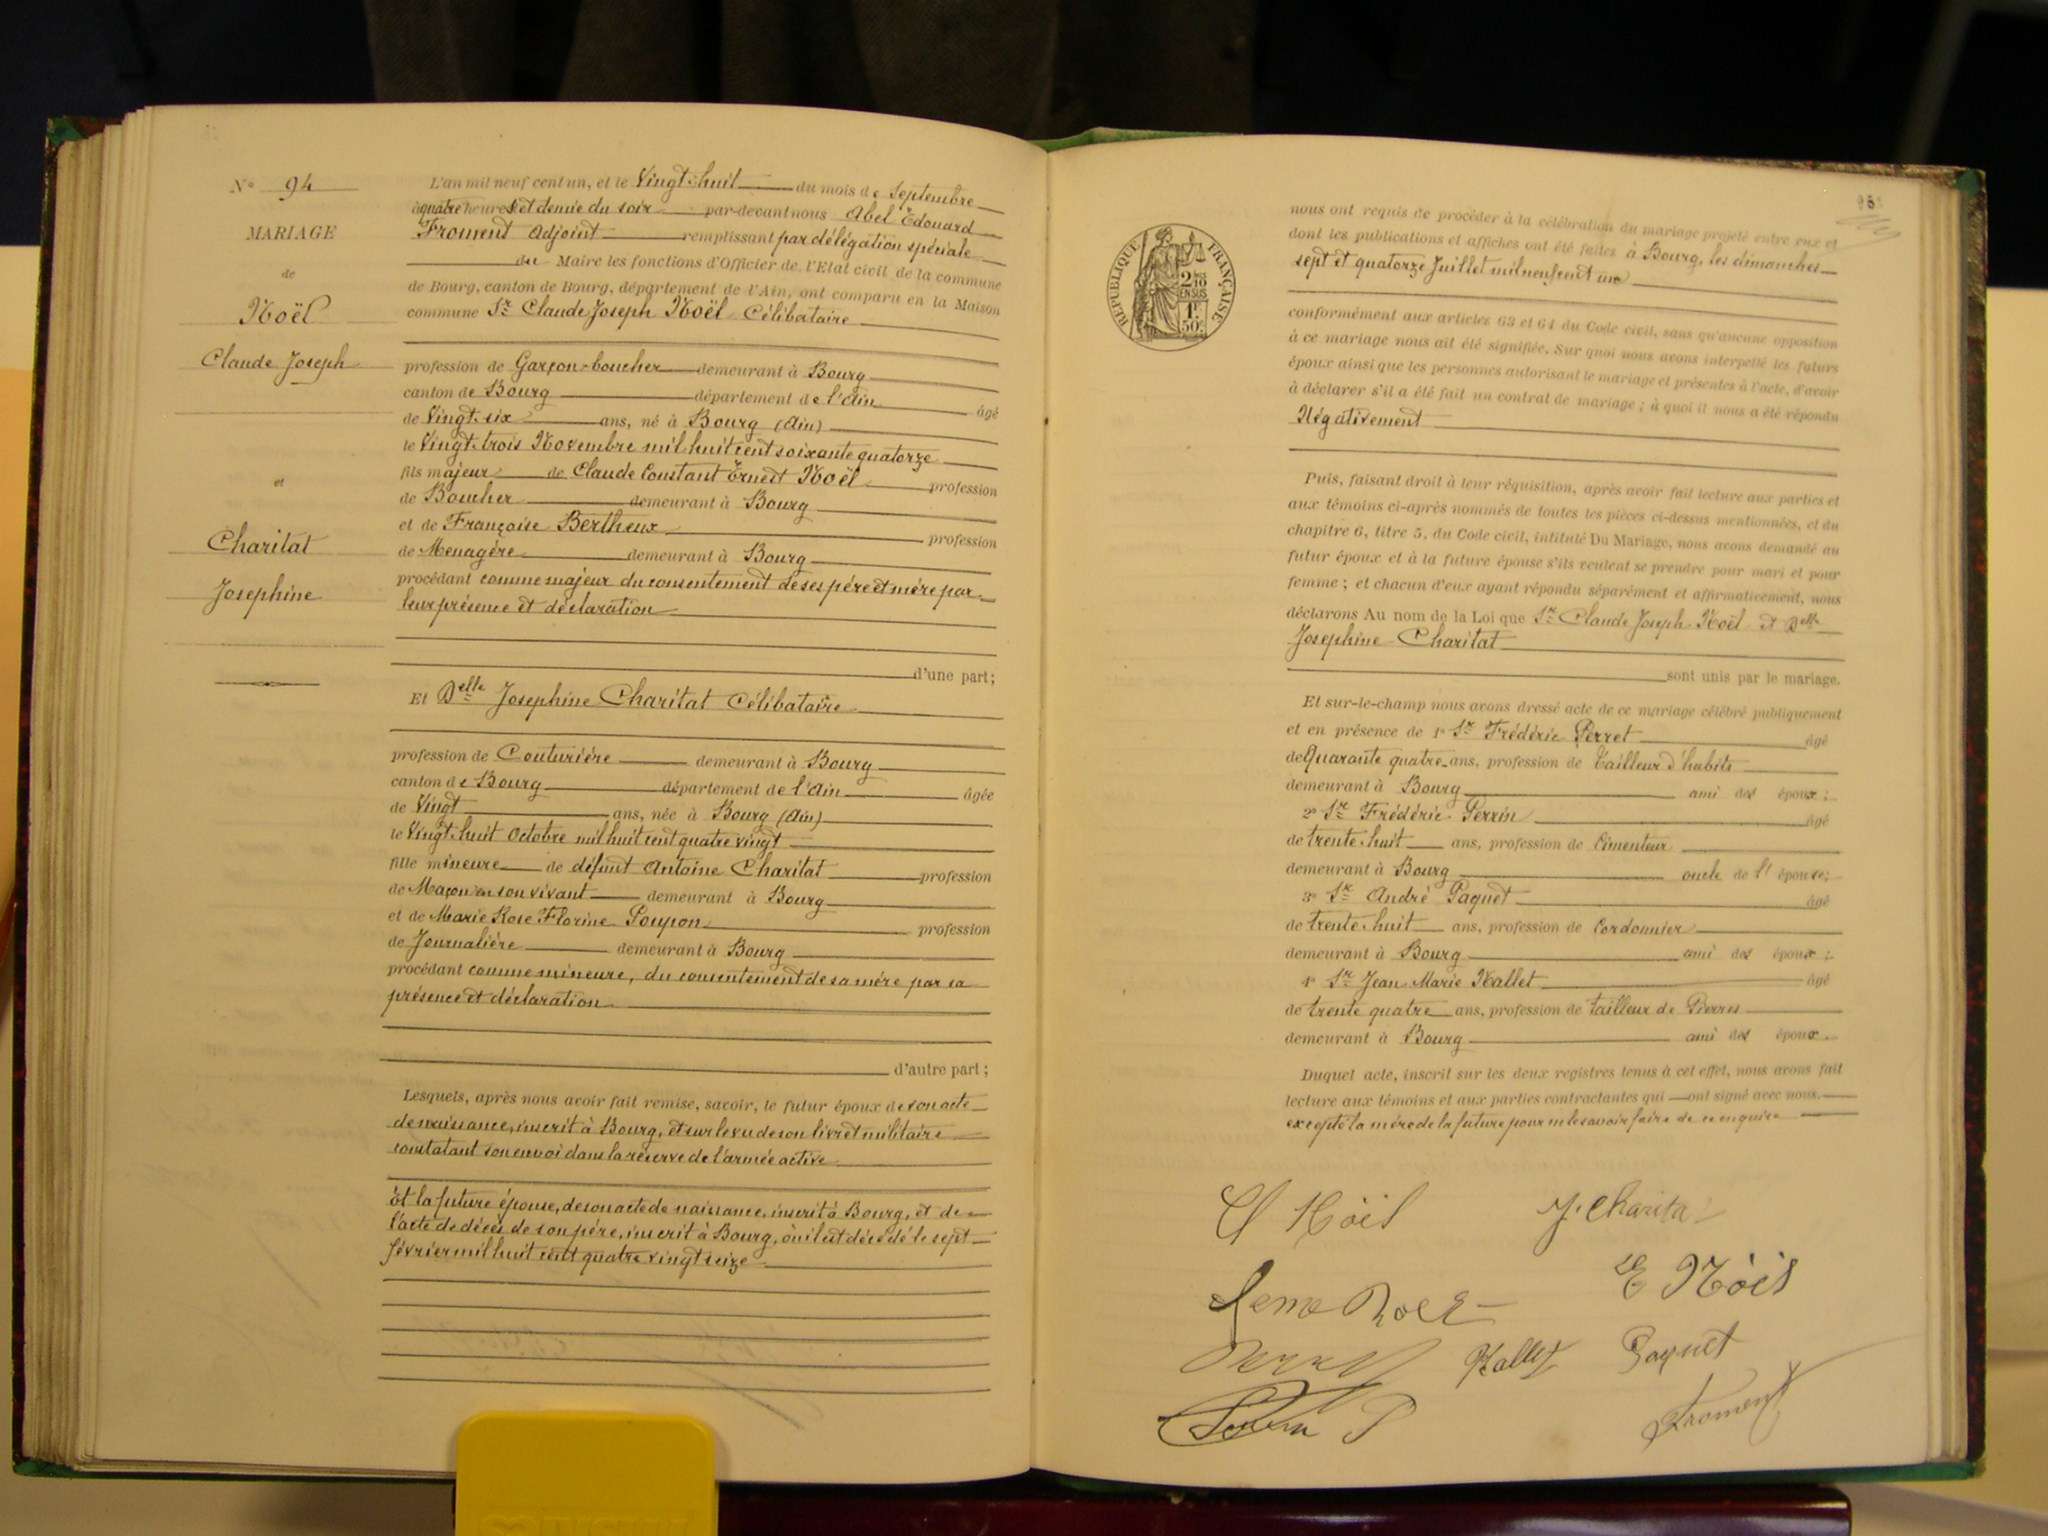 N° 94
MARIAGE
de
Noël
Claude Joseph
et
Charitat
Josephine
L'an mil neuf cent un, et le Vingt-huit du mois de Septembre
à quatre heures et demie du soir par-devant nous Abel Edouard
Froment Adjoint remplissant par délégation spéciale
du Maire les fonctions d'Officier de l'Etat civil de la commune
de Bourg, canton de Bourg, département de l'Ain, ont comparu en la Maison
commune Sr Claude Joseph Noël Célibataire
profession de Garçon-boucher demeurant à Bourg
canton de Bourg département de l'Ain âgé
de Vingt-six ans, né à Bourg (Ain)
le Vingt-trois Novembre mil huit cent soixante quatorze
fils majeur de Claude Constant Ernest Noël profession
de Boucher demeurant à Bourg
et de Françoise Bertheux profession
de Menagère demeurant à Bourg
procédant comme majeur du consentement de ses père et mère par
leur présence et déclaration
d'une part;
Et Delle Josephine Charitat Célibataire
profession de Couturière demeurant à Bourg
canton de Bourg département de l'Ain âgée
de Vingt ans, née à Bourg (Ain)
le Vingt-huit Octobre mil huit cent quatre vingt
fille mineure de défunt Antoine Charitat profession
de Maçon en son vivant demeurant à Bourg
et de Marie Rose Florine Poupon profession
de Journalière demeurant à Bourg
procédant comme mineure, du consentement de sa mère par sa
présence et déclaration
d'autre part;
Lesquels, après nous avoir fait remise, savoir, le futur époux de son acte
de naissance, inscrit à Bourg, et sur le vu de son livret militaire
constatant son envoi dans la réserve de l'armée active
Et la future épouse, de son acte de naissance, inscrit à Bourg, et de
l'acte de décès de son père, inscrit à Bourg, où il est décédé le sept
février mil huit cent quatre vingt seize
RÉPUBLIQUE FRANÇAISE
2/10
EN SUS
1F
50c
nous ont requis de procéder à la célébration du mariage projeté entre eux et
dont les publications et affiches ont été faites à Bourg, les dimanches
sept et quatorze Juillet mil neuf cent un
conformément aux articles 63 et 64 du Code civil, sans qu'aucune opposition
à ce mariage nous ait été signifiée. Sur quoi nous avons interpellé les futurs
époux ainsi que les personnes autorisant le mariage et présentes à l'acte, d'avoir
à déclarer s'il a été fait un contrat de mariage; à quoi il nous a été répondu
Négativement
Puis, faisant droit à leur réquisition, après avoir fait lecture aux parties et
aux témoins ci-après nommés de toutes les pièces ci-dessus mentionnées, et du
chapitre 6, titre 5, du Code civil, intitulé Du Mariage, nous avons demandé au
futur époux et à la future épouse s'ils veulent se prendre pour mari et pour
femme; et chacun d'eux ayant répondu séparément et affirmativement, nous
déclarons Au nom de la Loi que Sr Claude Joseph Noël et Delle
Josephine Charitat
sont unis par le mariage.
Et sur-le-champ nous avons dressé acte de ce mariage célébré publiquement
et en présence de 1° Sr Frédéric Perret âgé
de Quarante quatre ans, profession de Tailleur d'habits
demeurant à Bourg ami des époux;
2° Sr Frédéric Perrin âgé
de trente-huit ans, profession de Cimenteur
demeurant à Bourg oncle de l'épouse;
3° Sr André Paquet âgé
de trente-huit ans, profession de Cordonnier
demeurant à Bourg ami des époux;
4° Sr Jean Marie Nallet âgé
de trente quatre ans, profession de tailleur de Pierres
demeurant à Bourg ami des époux.
Duquel acte, inscrit sur les deux registres tenus à cet effet, nous avons fait
lecture aux témoins et aux parties contractantes qui ont signé avec nous.
excepté la mère de la future pour ne le savoir faire de ce enquise
Cl Noël J. Charita
E Noël
Nallet Paquet
Froment